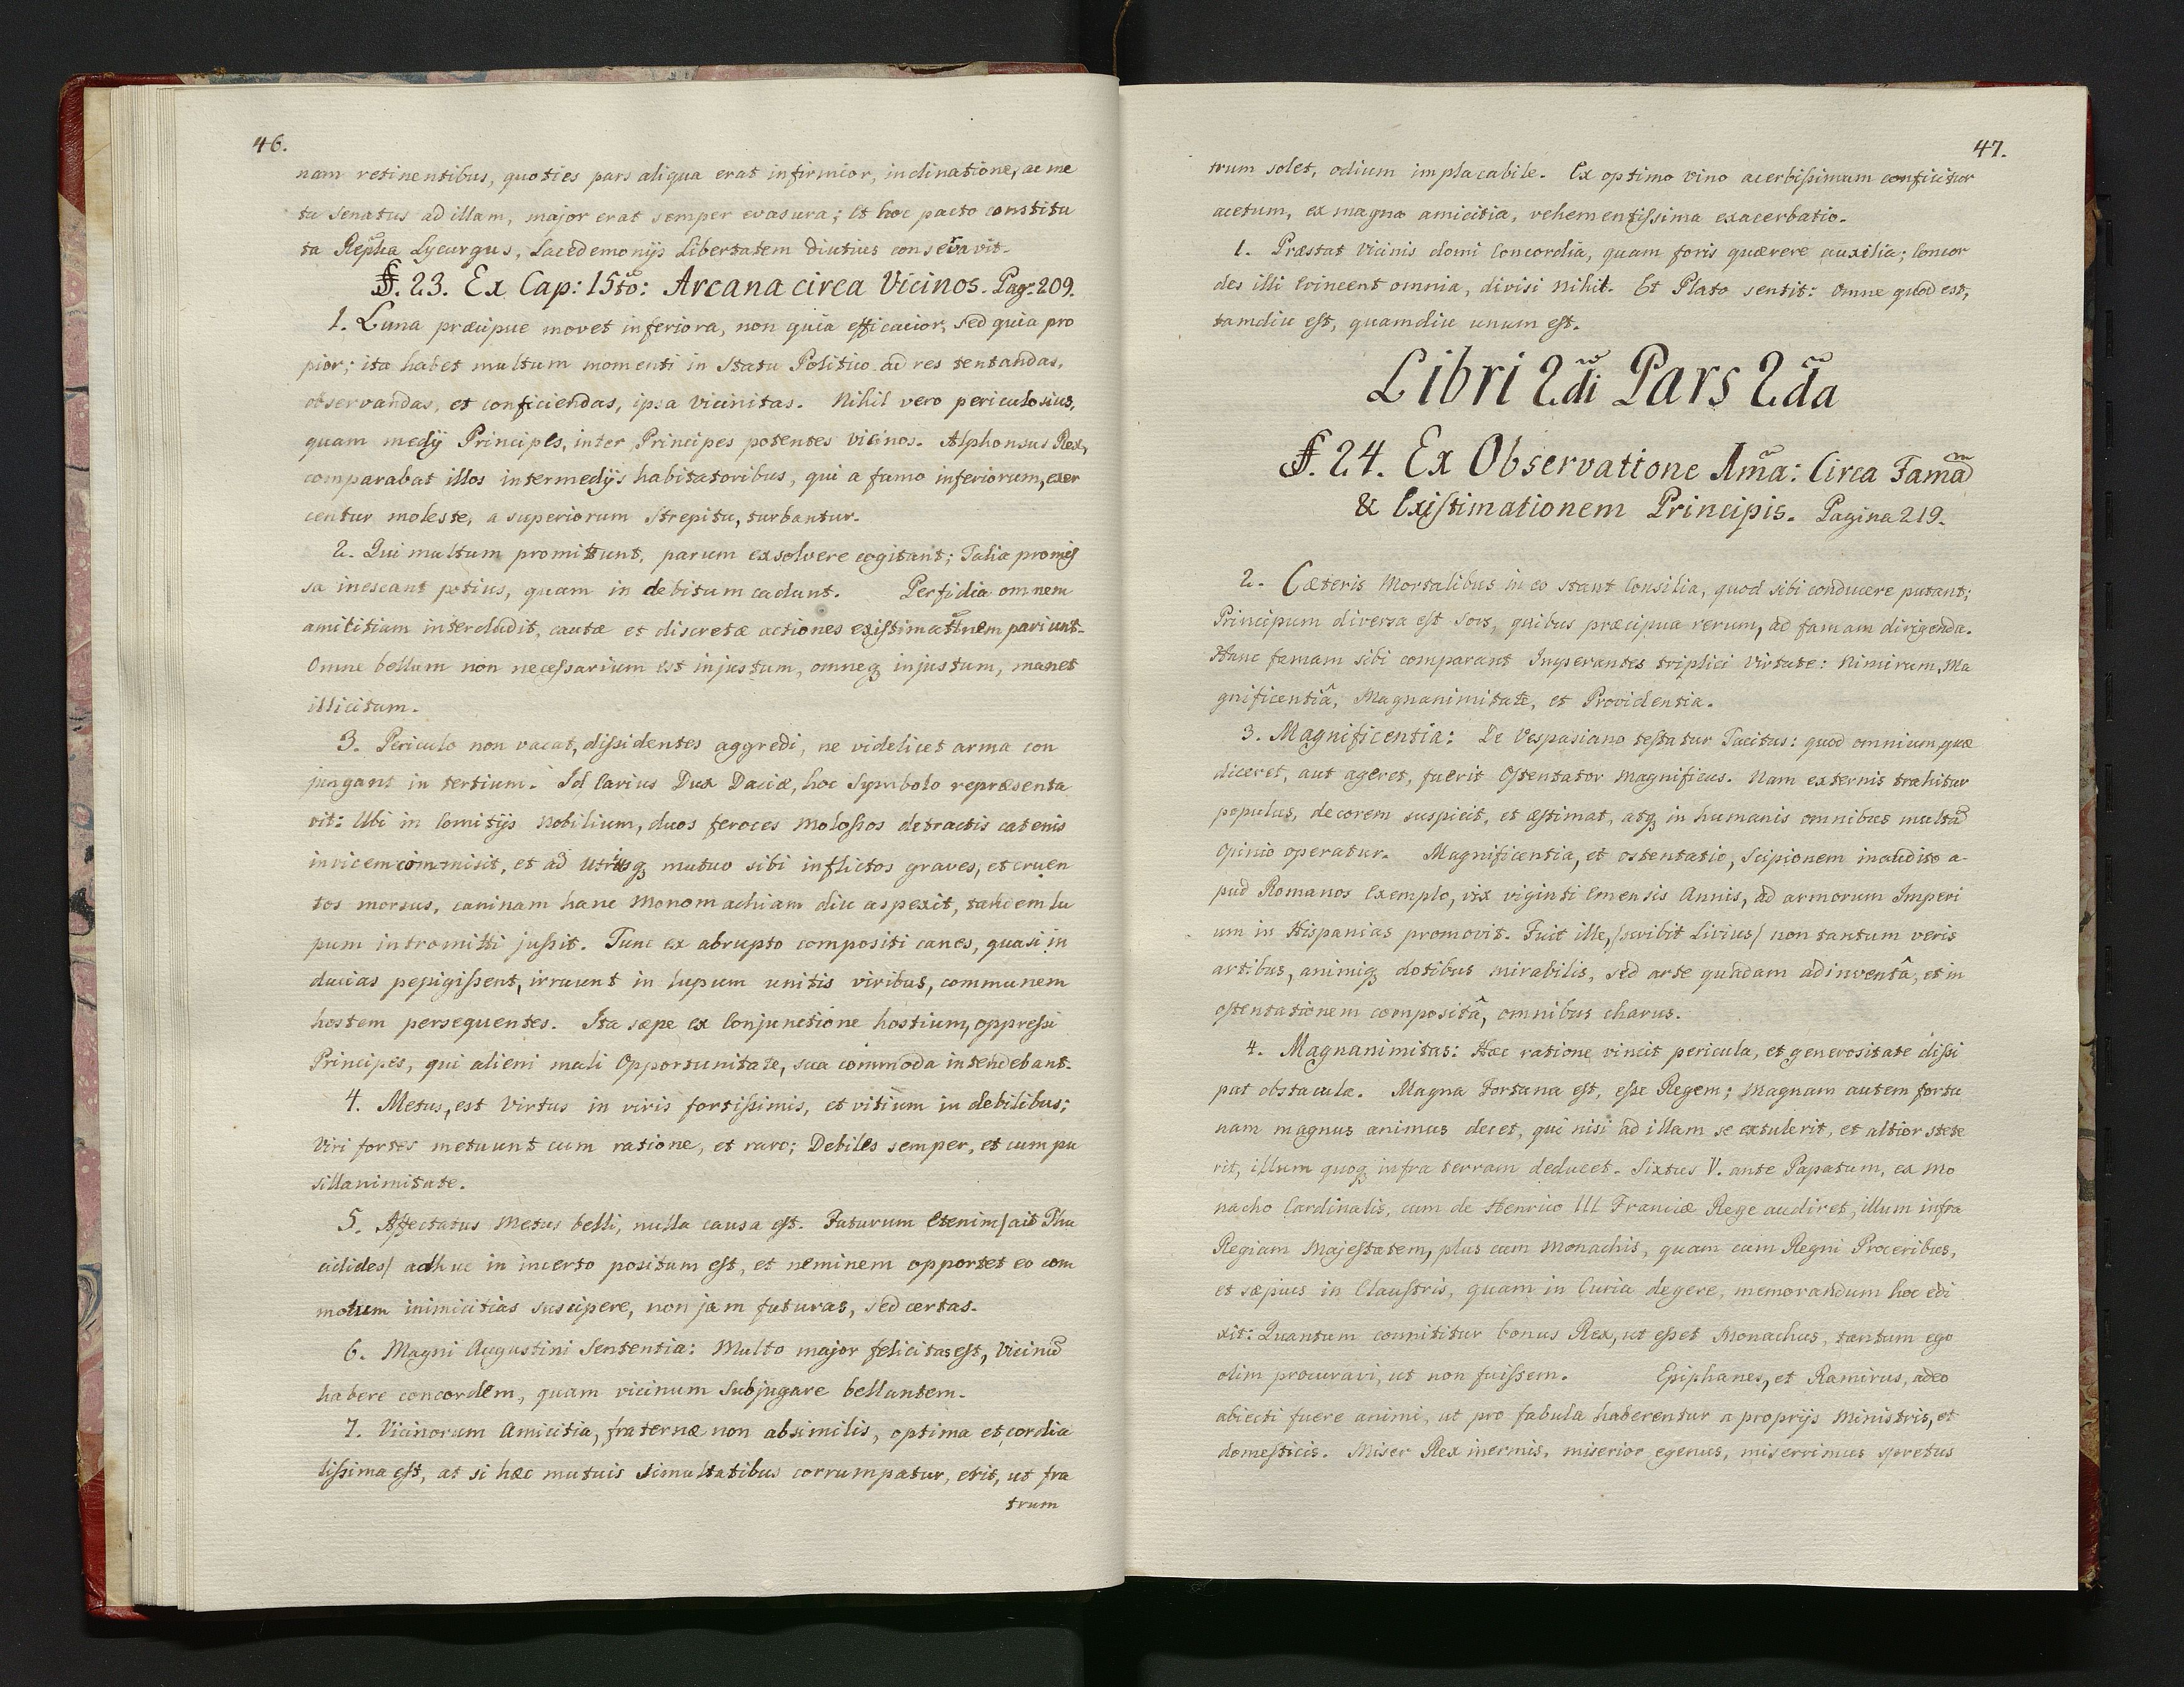 46.
nam retinentibus, quoties pars aliqua erat infirmior, inclinatione, ac me
tu Senatus ad illam, major erat semper evasura; Et hoc pacto constitu
ta Repha Lycurgus, Lacedemonijs Libertatem diutius conservavit.
§. 23. Ex Cap: 15to: Arcana circa Vicinos. Pag. 209.
1. Luna præcipue movet inferiora, non quia efficacior, sed quia pro
pior; ita habet multum momenti in Statu Politico ad res tentandas,
observandas, et conficiendas, ipsa vicinitas. Nihil vero periculosius,
quam medij Principes, inter Principes potentes vicinos. Alphonsus Rex,
comparabat illos intermedijs habitatoribus, qui a fumo inferiorum, exer
centur moleste, a superiorum Strepitu, turbantur.
2. Qui multum promittunt, parum exsolvere cogitant; Talia promiſ
sa inescant potius, quam in debitum cadunt. Perfidia omnem
amicitiam intercludit, cautæ et discretæ actiones existimatinem pariunt.
Omne bellum non neceſsarium est injustum, omneq injustum, manet
illicitum.
3. Periculo non vacat, diſsidentes aggredi, ne videlicet arma con
jungant in tertium. Id Carius Dux Daciæ, hoc Symbolo repræsenta
vit: Ubi in Comitijs Nobilium, duos feroces Moloſsos detractis catenis
invicem commisit, et ad utriusq mutuo sibi inflictos graves, et cruen
tos morsus, caninam hanc Monomachiam diu aspexit, tandem lu
pum intromitti juſsit. Tunc ex abrupto compositi canes, quasi in
ducias pepigiſsent, irruunt in lupum unitis viribus, communem
hostem persequentes. Ita sæpe ex Conjunctione hostium, oppreſsi
Principes, qui alieni mali Opportunitate, sua commoda intendebant.
4. Metus, est Virtus in viris fortiſsimis, et vitium in debilibus;
Viri fortes metuunt cum ratione, et raro; Debiles semper, et cum pu
sillanimitate.
5. Affectatus Metus belli, nulla causa eſt. Futurum Etenim/ait Thu
cidides/ adhuc in incerto positum eſt, et neminem opportet eo com
motum inimicitias suscipere, non jam futuras, sed certas.
6. Magni Augustini Sententia: Multo major felicitas eſt, Vicinũ
habere concordem, quam vicinum Subjugare bellantem.
7. Vicinorum Amicitia, fraternæ non absimilis, optima et cordia
liſsima eſt, at si hæc mutuis simultatibus corrumpatur, erit, ut fra
trum
47.
trum solet, odium implacabile. Ex optimo vino acerbiſsimum conficitur
acetum, ex magna amicitia, vehementiſsima exacerbatio.
1. Præstat Vicinis domi Concordia, quam foris quærere auxilia; Concor
des illi Evincent omnia, divisi nihil. Et Plato sentit: Omne quod est,
tamdiu eſt, quamdiu unum eſt.
Libri 2di Pars 2da
§. 24. Ex Observatione 1ma: Circa Famam
& Exiſtimationem Principis. Pagina 219.
2. Cæteris Mortalibus in eo stant Consilia, quod sibi conducere putant;
Principum diversa eſt Sors, quibus præcipua rerum, ad famam dirigenda.
Hanc famam sibi comparant Imperantes triplici Virtute: Nimirum, Ma
gnificentiâ, Magnanimitate, et Providentia.
3. Magnificentia: De Vespasiano teſtatur Tacitus: quod omnium, quæ
diceret, aut ageret, fuerit Oſtentator Magnificus. Nam externis trahitur
populus, decorem suspicit, et æſtimat, atq in humanis omnibus multũ
Opinio operatur. Magnificentia, et ostentatio, Scipionem inaudito a-
pud Romanos Exemplo, vix viginti Emensis Annis, ad armorum Imperi
um in Hispanias promovit. Fuit ille, /scribit Livius/ non tantum veris
artibus, animiq dotibus mirabilis, sed arte quadam adinventâ, et in
oſtentationem compositâ, omnibus charus.
4. Magnanimitas: Hæc ratione vincit pericula, et generositate diſsi
pat obstacula. Magna Fortuna eſt, eſse Regem; Magnam autem fortu
nam magnus animus decet, qui nisi ad illam se extulerit, et altior stete
rit, illum quoq infra terram deducet. Sixtus V. ante Papatum, ex Mo
nacho Cardinalis, cum de Henrico III Franciæ Rege audiret, illum infra
Regiam Majeſtatem, plus cum Monachis, quam cum Regni Proceribus,
et sæpius in Clauſtris, quam in Curia degere, memorandum hoc edi
xit: Quantum connititur bonus Rex, ut eſset Monachus, tantum ego
olim procuravi, ut non fuiſsem. Epiphanes, et Ramirus, adeo
abiecti fuere animi, ut pro fabula haberentur a proprijs Ministris, et
domeſticis. Miser Rex inermis, miserior egenus, miserrimus spretus